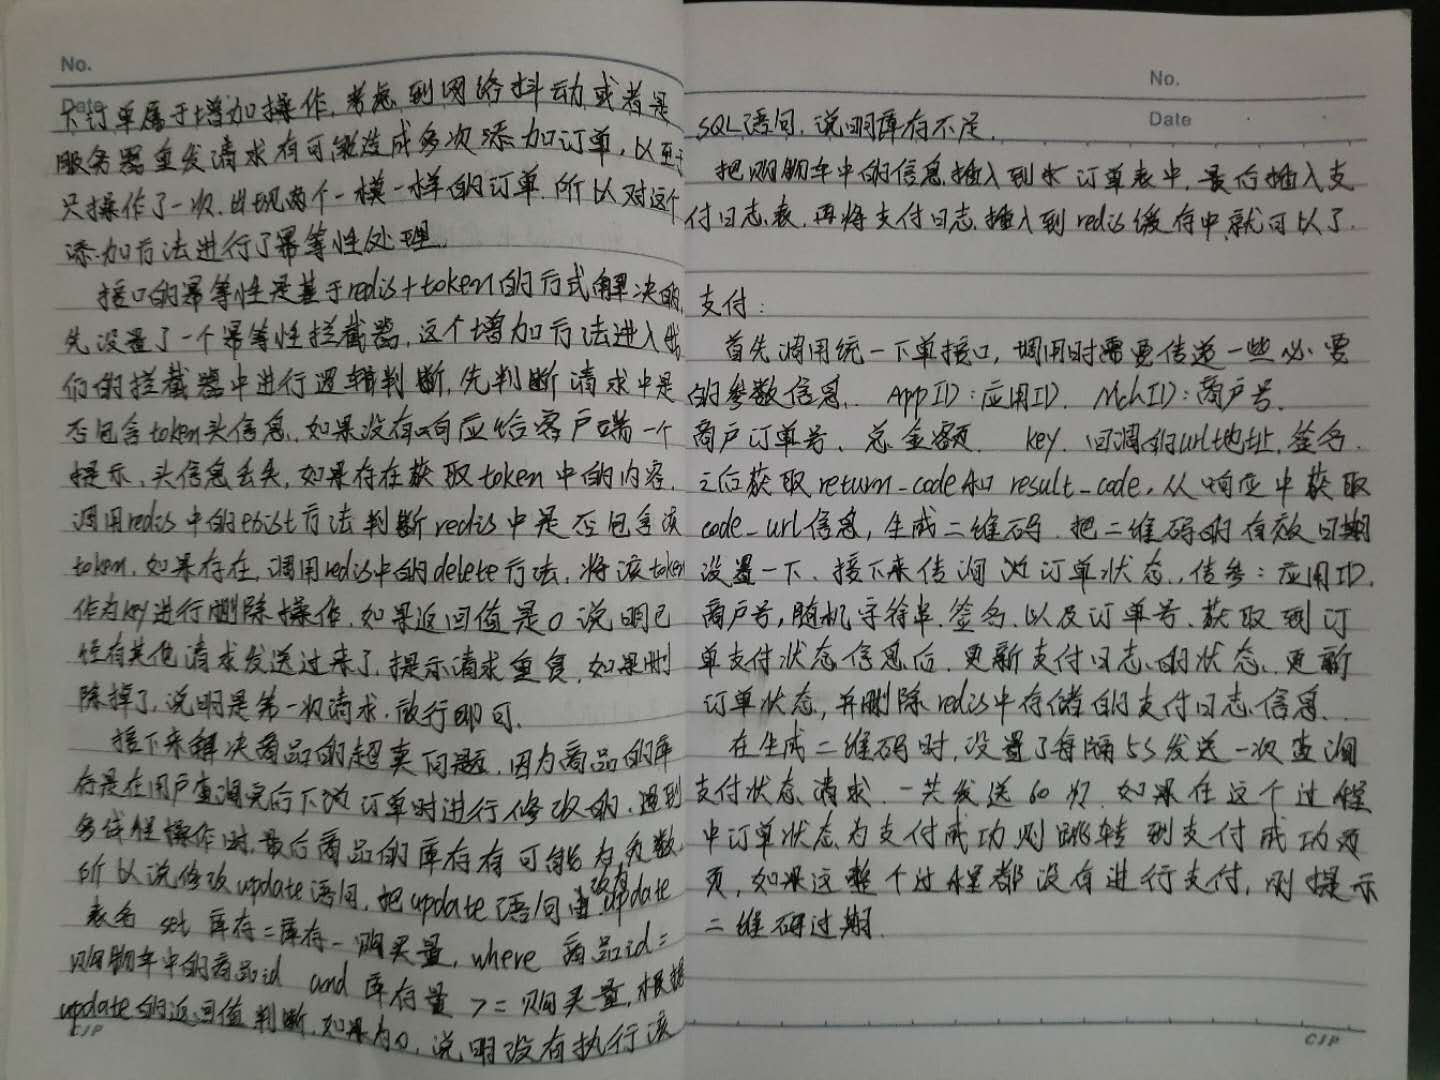 No.
Date
下订单属于增加操作,考虑到网络抖动或者是
服务器重发请求有可能造成多次添加订单,以至于
只操作了一次.出现两个一模一样的订单.所以对这个
添加方法进行了幂等性处理.
接口的幂等性是基于redis+token的方式解决的,
先设置了一个幂等性拦截器,这个增加方法进入我
们的拦截器中进行逻辑判断,先判断请求中是
否包含token头信息,如果没有响应给客户端一个
提示,头信息丢失,如果存在获取token中的内容,
调用redis中的exist方法判断redis中是否包含该
token,如果存在,调用redis中的delete方法,将该token
作为key进行删除操作,如果返回值是0说明已
经有其他请求发送过来了,提示请求重复,如果删
除掉了,说明是第一次请求,放行即可.
接下来解决商品的超卖问题,因为商品的库
存是在用户查询完后下达订单时进行修改的,遇到
多线程操作时,最后商品的库存有可能为负数,
所以说修改update语句,把update语句改为update
表名 set 库存=库存-购买量, where 商品id=
购物车中的商品id and 库存量>=购买量,根据
update的返回值判断,如果为0,说明没有执行该
CJP
No.
Date
SQL语句,说明库存不足.
把购物车中的信息插入到订单表中,最后插入支
付日志表,再将支付日志插入到redis缓存中就可以了.
支付:
首先调用统一下单接口,调用时需要传递一些必要
的参数信息. AppID:应用ID. MchID:商户号.
商户订单号、总金额、 key、回调的url地址,签名.
之后获取return_code和result_code,从响应中获取
code_url信息,生成二维码.把二维码的有效日期
设置一下.接下来查询订单状态,传参:应用ID,
商户号,随机字符串.签名.以及订单号.获取到订
单支付状态信息后.更新支付日志的状态.更新
订单状态,并删除redis中存储的支付日志信息.
在生成二维码时,设置了每隔5S发送一次查询
支付状态请求.一共发送60次.如果在这个过程
中订单状态为支付成功则跳转到支付成功页
页,如果这整个过程都没有进行支付,则提示
二维码过期.
CJP